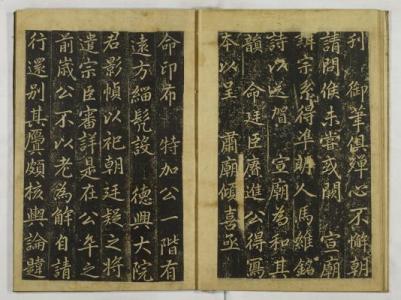 刊 御筆俱殫心不懈朝
請問候未嘗或闕 宣廟
辨宗系得準明人馬維銘
詩以送贈 宣廟為和其
韻 命廷臣賡進公得寫
夲以呈 肅廟傾喜亟
命印布 特加公一階有
遠方緇髡設 德興大院
君影幀以祀朝廷疑之將
遣宗臣審詳是在公卒之
前歲公不以老為解自請
行還別其贋頗核輿論韙